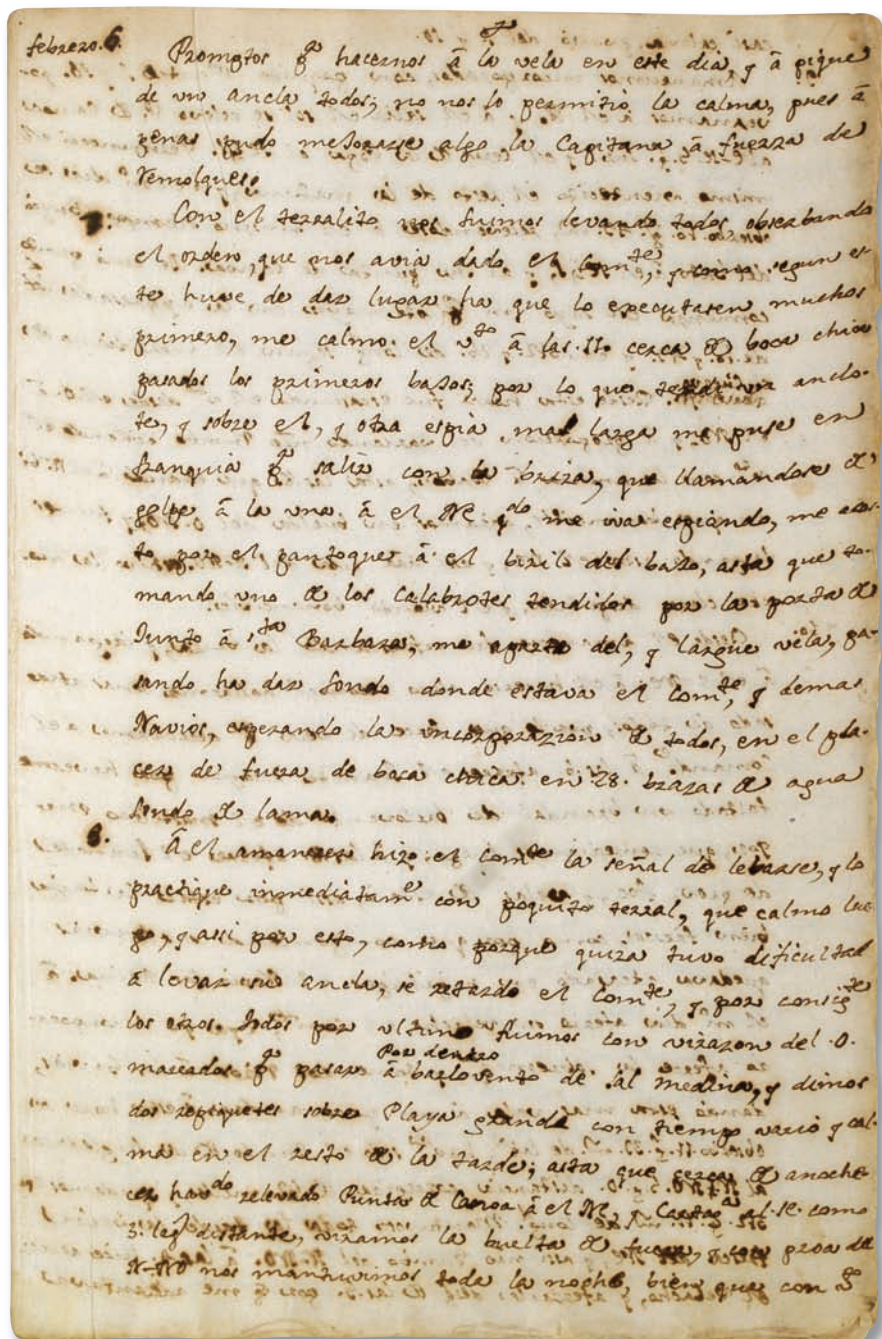 febrero. 6. Promptos pª hacernos â la vela en este dia, y â pique
de vn ancla todos; no nos lo permitio la calma, pues â
penas pudo mejorarse algo la Capitana â fuerza de
remolques.
7. Con el terralito nos fuimos levando todos obserbando
el orden, que nos avia dado el Comte, y como segun es
te huve de dar lugar ha que lo executasen muchos
primero, me calmo el vto â las 11. cerca de boca chica
pasados los primeros bajos; por lo que tendi un anclo-
te, y sobre el, y otra espia mas larga me puse en
franquia pª salir con la briza, que llamandose de
golpe â la vna â el NE qdo me iva espiando, me acos-
to por el pantoque â el biril del bajo, asta que to-
mando vno de los Calabrotes tendidos por la porta de
Junto â Sta Barbara, me agarre del, y largue vela, pa-
sando ha dar fondo donde estava el Comte, y demas
Navios, esperando la incorporazion de todos, en el pla-
cer de fuera de boca chica en 28. brazas de agua
fondo de lama.
8. Â el amanecer hizo el Comte la señal de lebarse, y lo
practique inmediatame con poquito terral, que calmo lue
go, y assi por esto, como porque quiza tuvo dificultad
â levar su ancla, se retardo el Comte, y por consigte
los otros. Todos por vltimo fuimos con virazon del O.
mareados pª pasar â barlovento de sal medina, y dimos
Por dentro
dos repiquetes sobre Playa grande con tiempo vario y cal-
ma en el resto de la tarde; asta que cerca de anoche
cer havdo relevado Punta de Canoa â el NE, y Cartagª al SE como
3. leg distante, viramos la buelta de fuera, y con proa del
N-NO nos mantuvimos toda la noche, bien que con